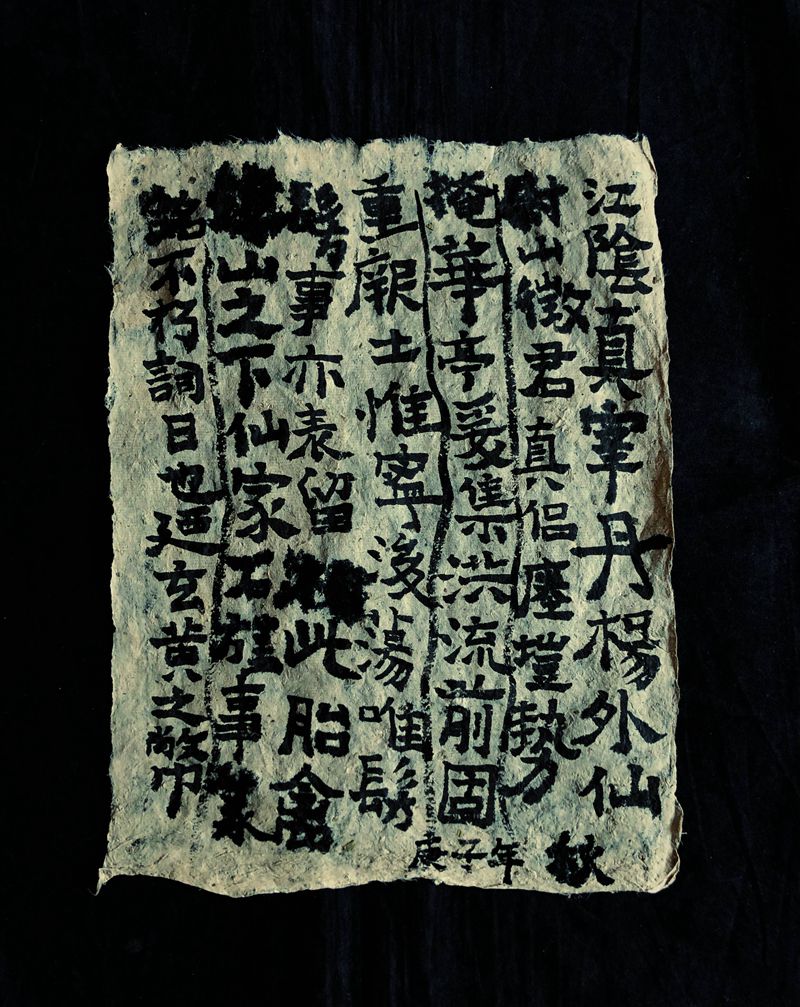 江陰真宰丹楊外仙
尉山徵君真侶塏勢
掩華亭爰集洪流前固
重土惟寧後蕩唯髣
髴事亦表留此胎禽
山之下仙家石旌事篆
銘不朽詞曰也迺玄黄之幣
庚子年 秋